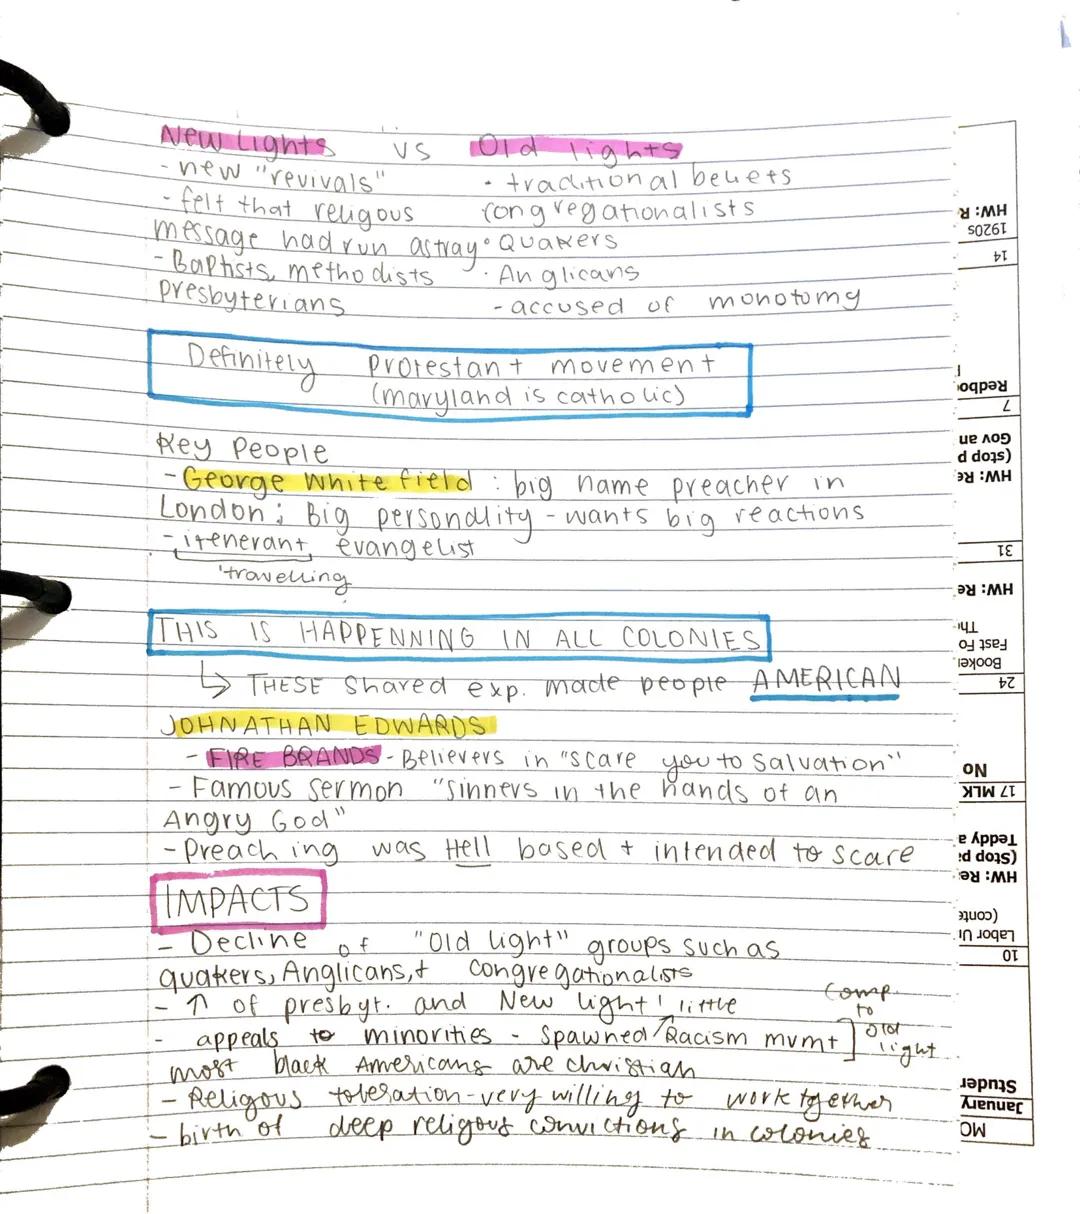 New Lights vs Old lights
- new "revivals" · traditional beliefs
- felt that religous congregationalists
message had run astray · Quakers
- Baptists, methodists · Anglicans
presbyterians - accused of monotomy
Definitely protestant movement
(maryland is catholic)
Key People
- George White field : big name preacher in
London ; Big personality - wants big reactions
- itenerant, evangelist
travelling
THIS IS HAPPENNING IN ALL COLONIES
↳ THESE shared exp. made people AMERICAN
JOHNATHAN EDWARDS
- FIRE BRANDS - Believers in "scare you to salvation"
- Famous sermon "sinners in the hands of an
Angry God"
- Preaching was Hell based + intended to scare
IMPACTS
- Decline of "Old light" groups such as
quakers, Anglicans, + congregationalists
- ↑ of presbyt. and New light! little
- appeals to minorities - spawned Racism mvmt ] comp. to old light
most black Americans are christian
- Religous toleration - very willing to work together
- birth of deep religous convictions in colonies
MO
January
Studer
10
Labor Un
(conte
HW: Re
(Stop pa
Teddy a
17 MLK
No
24
Booker
Fast Fo
Th
HW: Re
31
HW: Re
(stop p
Gov an
7
Redboo
14
1920s
HW: R